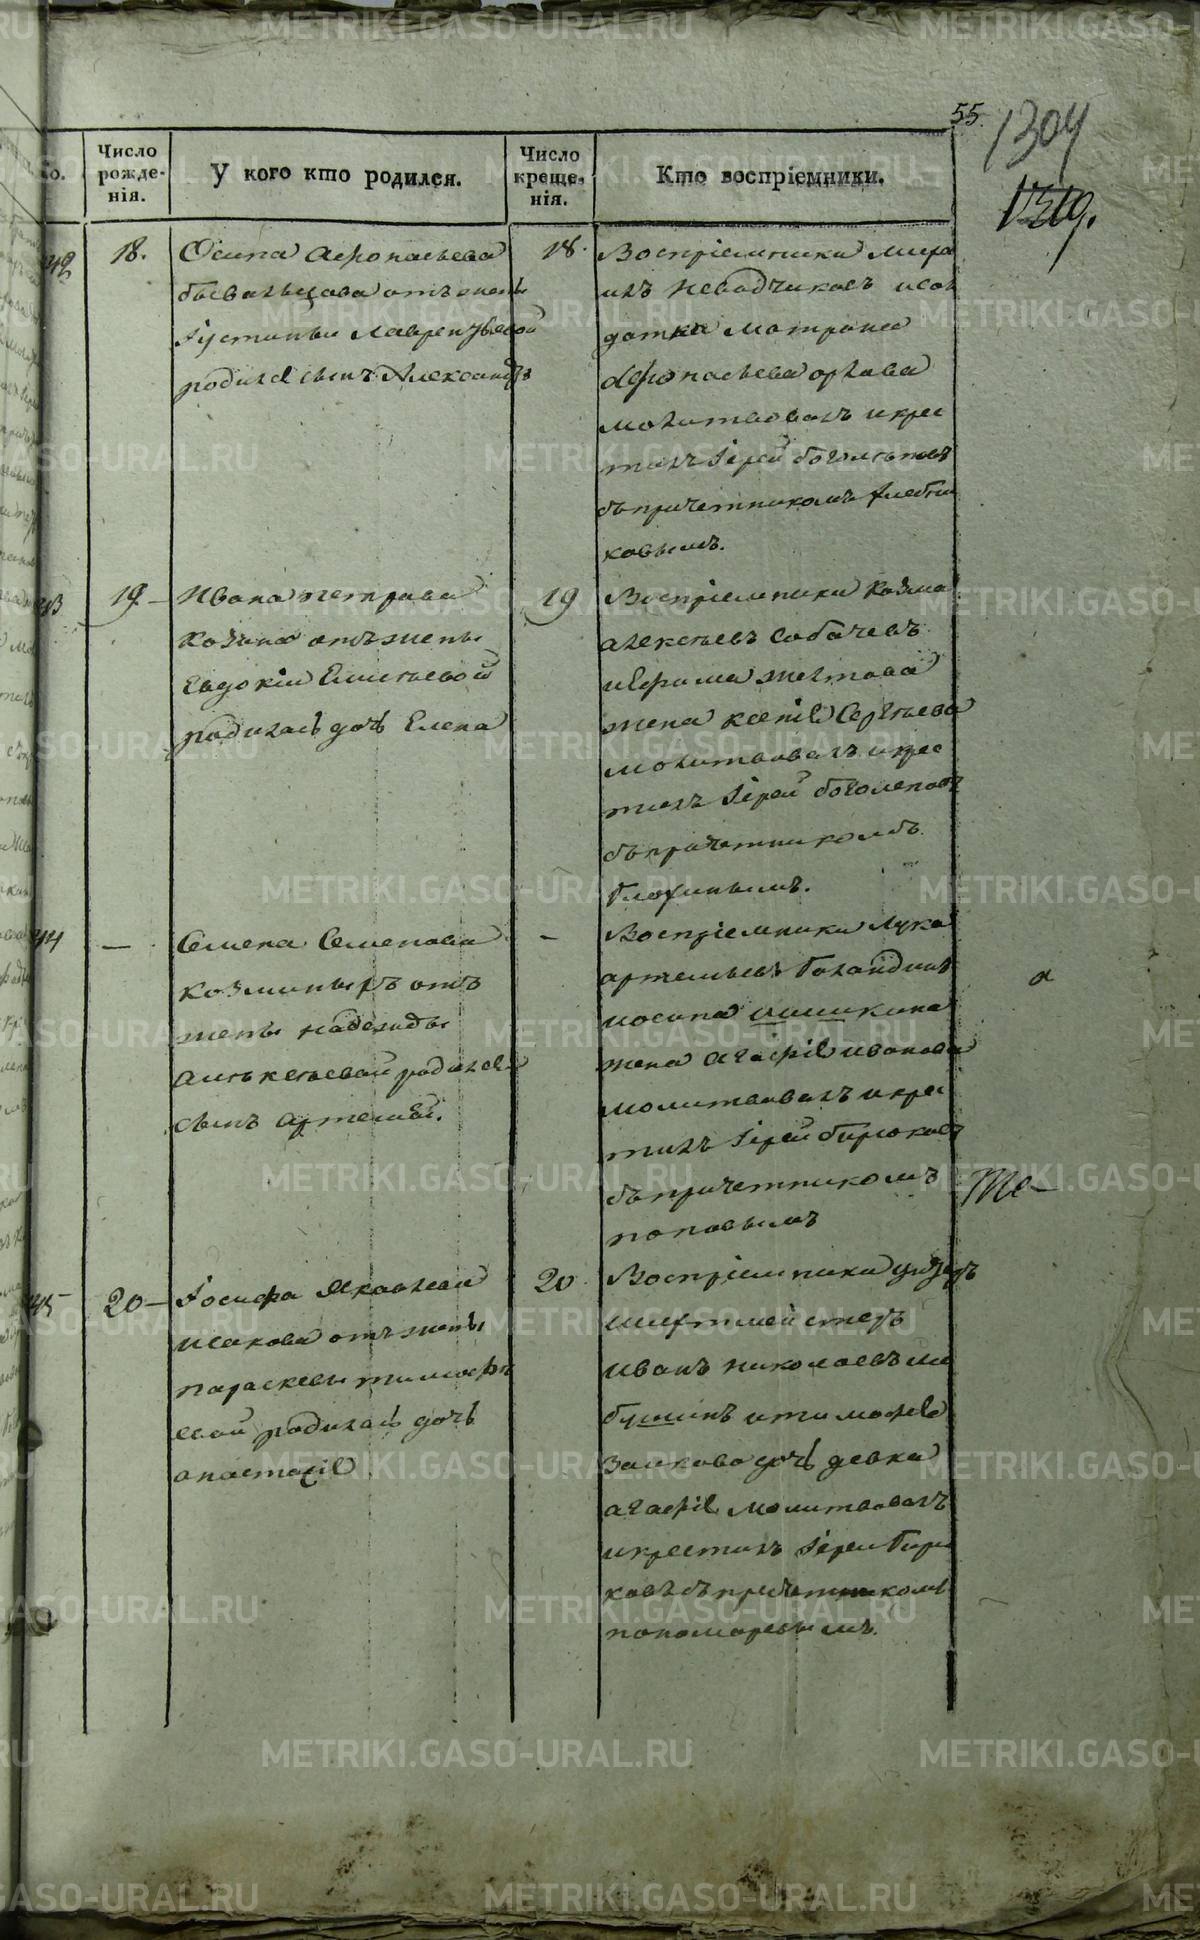 55.
1304
1319.
Число рожденія.
У кого кто родился.
Число крещенія.
Кто воспріемники.
42
18.
Осипа Афонасьева
отъ жены
Іустиньи Лаврентьевой
родился сынъ Александръ
18.
Воспріемники
Неводчиковъ и сол
датка Матрона
Афонасьева Орлова
молитвовалъ и крес
тилъ Іерей Боголеповъ
съ причетникомъ Хлебни
ковымъ.
43
19
Ивана Петрова
Козина отъ жены
Евдокіи Елисеевой
родилась дочь Елена
19
Воспріемники Козма
Алексеевъ Собачевъ
и Ефима Желтова
жена Ксенія Сергеева
молитвовалъ и крес
тилъ Іерей Боголеповъ
съ причетникомъ
Блохинымъ.
44
—
Семена Семенова
Козминыхъ отъ
жены Надежды
Алексеевой родился
сынъ Артемій.
—
Воспріемники Лука
Артемьевъ Баландинъ
и Осипа Шишкина
жена Агафія Иванова
молитвовалъ и крес
тилъ Іерей Бирюковъ
съ причетникомъ
Поповымъ
45
20
Іосифа Яковлева
Исакова отъ жены
Параскевы Тимофе
евой родилась дочь
Анастасія
20
Воспріемники унтеръ
шихтмейстеръ
Иванъ Николаевъ
и Тимофея
дочь девка
Агафія молитвовалъ
и крестилъ Іерей Бирю
ковъ съ причетникомъ
Пономаревымъ.
METRIKI.GASO-URAL.RU